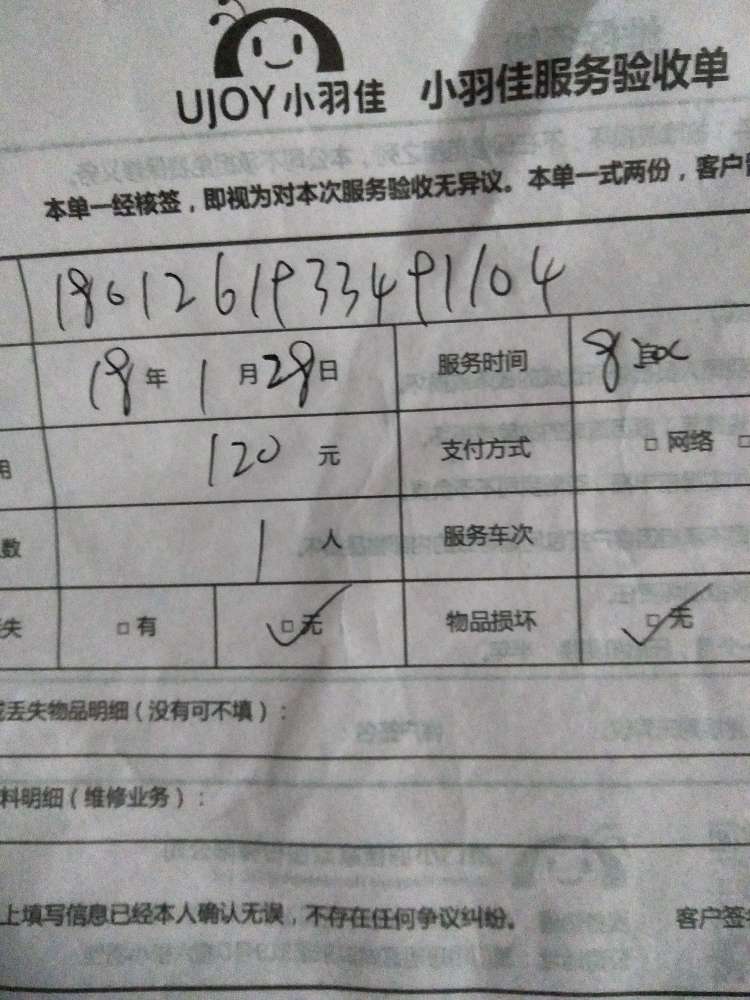 UJOY小羽佳 小羽佳服务验收单
本单一经核签，即视为对本次服务验收无异议。本单一式两份，客户
1801261933491104
18年1月28日 服务时间 8
用 120元 支付方式 □网络 □
数 1人 服务车次
失 □有 □无 物品损坏 □无
丢失物品明细（没有可不填）：
料明细（维修业务）：
上填写信息已经本人确认无误，不存在任何争议纠纷。 客户签